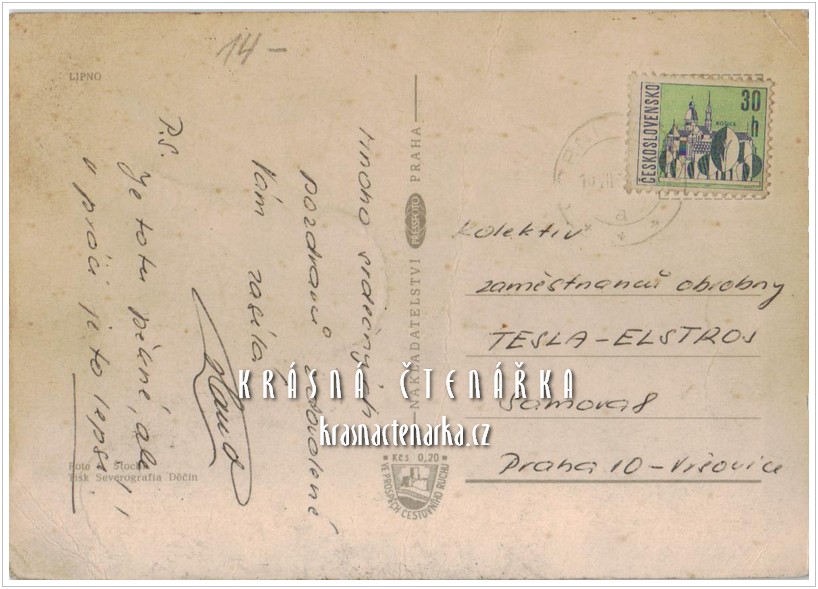 14-
LIPNO
Mnoho srdečných
pozdravů z dovolené
Vám zasílá
P.S.
Je to tu pěkné, ale
v práci je to lepší!
NAKLADATELSTVÍ PRESSFOTO PRAHA
Kčs 0,20
VE PROSPĚCH CESTOVNÍHO RUCHU
ČESKOSLOVENSKO
30
h
KOŠICE
Kolektiv
zaměstnanců obrobny
TESLA-ELSTROJ
Samova 8
Praha 10-Vršovice
KRÁSNÁ ČTENÁŘKA
krasnactenarka.cz
Foto
Tisk Severografia Děčín